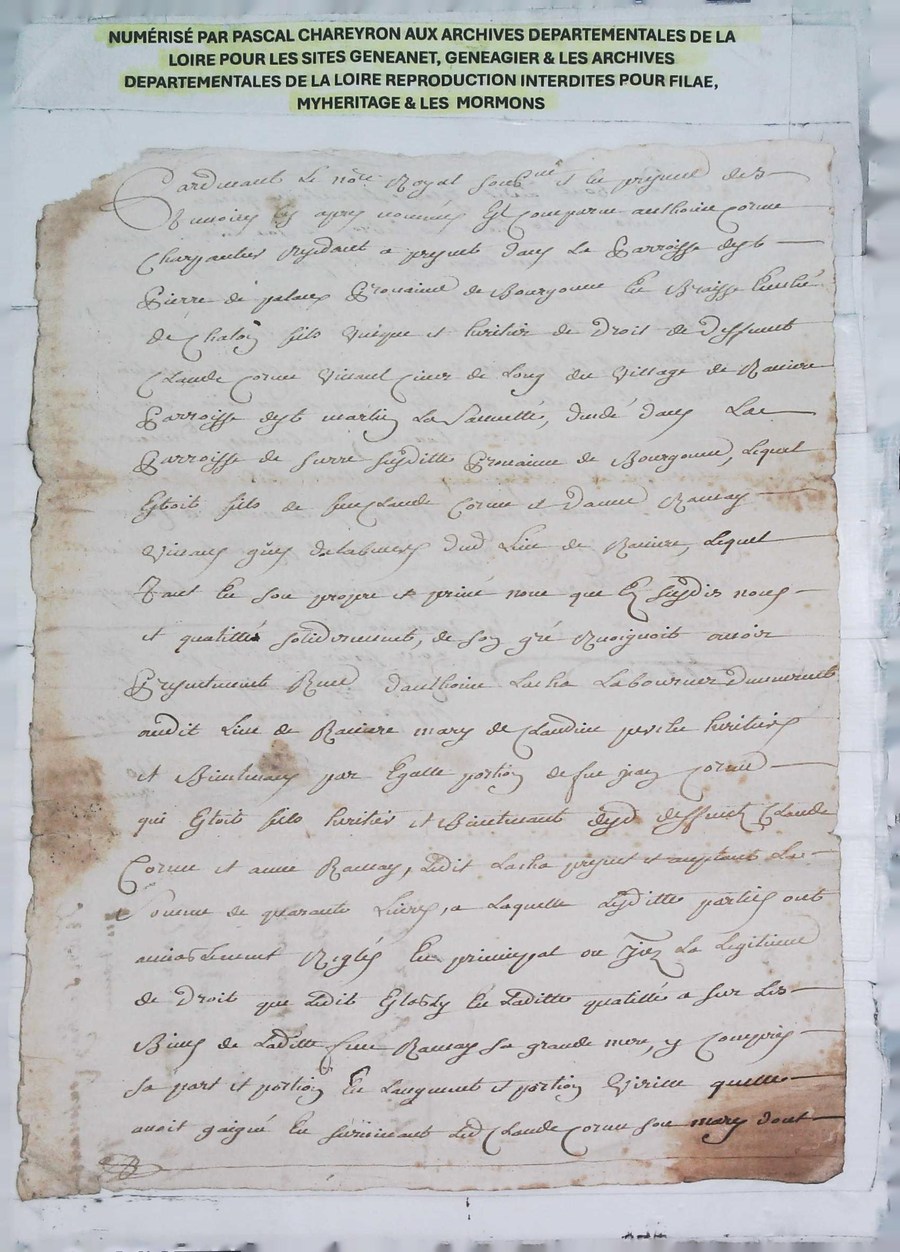 NUMÉRISÉ PAR PASCAL CHAREYRON AUX ARCHIVES DEPARTEMENTALES DE LA
LOIRE POUR LES SITES GENEANET, GENEAGIER & LES ARCHIVES
DEPARTEMENTALES DE LA LOIRE REPRODUCTION INTERDITES POUR FILAE,
MYHERITAGE & LES MORMONS
Pardevant Le no.re Royal soubs.né et En presence des
Temoins cy apres nommés Est Comparu anthoine Cornu
Charpantier Residant a present dans La Parroisse de st
Pierre de Province de Bourgonne En Bresse
de Chalon fils Unique et heritier de Droit de Deffunt
Claude Cornu Vivant de Long du Village de
Parroisse de st martin La Sauveté, dans La
Parroisse de surre susditte Province de Bourgonne, Lequel
Estoit fils de feu Claude Cornu et danne Ramay
Vivans dud Lieu de Lequel
Tant En son propre et privé nom que Es susdits noms
et qualittés solidairement, de son gré avoir
Presentement Receu danthoine Lacha Laboureur
audit Lieu de mary de Claudine heritiers
et par Egalle portion de feu jean Cornu
qui Estoit fils heritier et desd deffunts Claude
Cornu et anne Ramay, Ledit Lacha present et acceptant La
Somme de quarante Livres, a Laquelle Lesdittes parties ont
amiablement Reglés En principal ou La Legitime
de Droit que Ledit En Laditte qualitté a sur Les
Biens de Laditte feue Ramay Sa grande mere, y Compris
Sa part et portion En Laugment et portion Virille quelle
avoit gaigné En survivant Led Claude Cornu Son mary dont